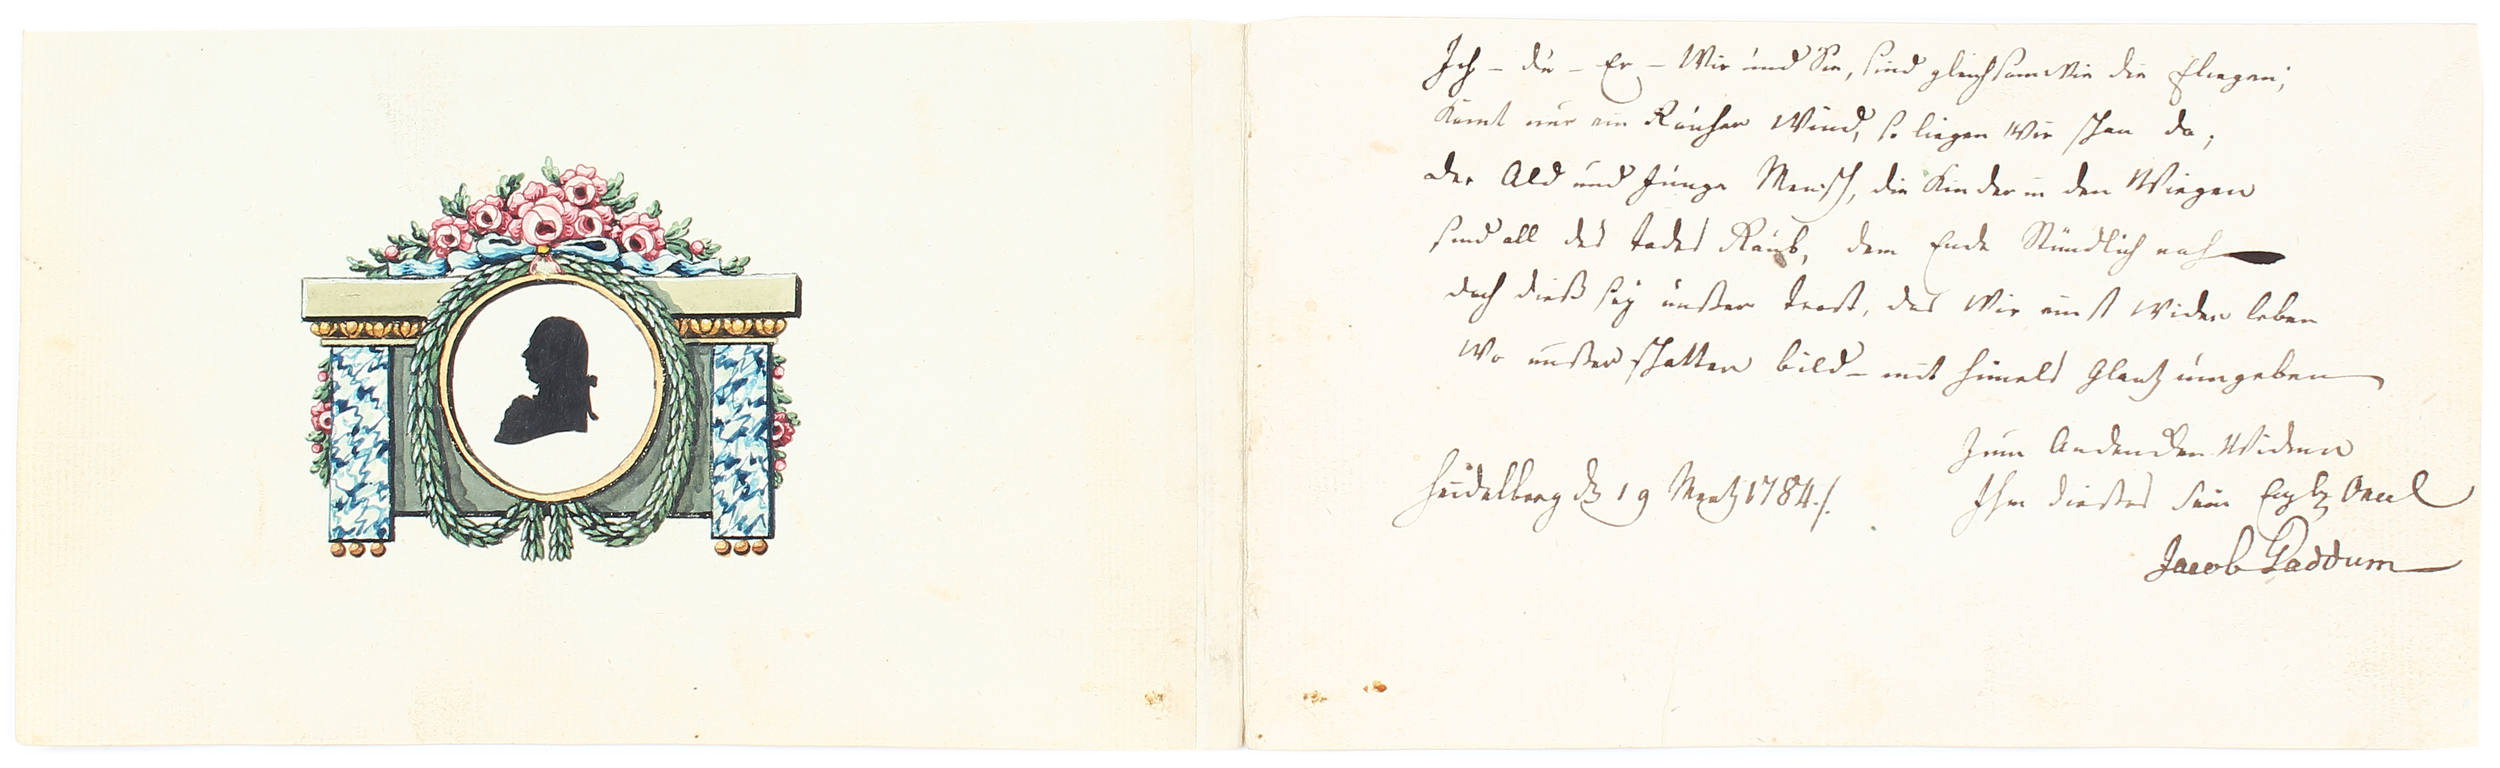 Ich – du – Er – Wir und Sie, sind gleichsam Wie die Fliegen;
Komt nur ein Rauher Wind, so liegen Wir schon da;
der Ald und Junge Mensch, die Kinder in den Wiegen
sind all des todes Raub, dem Ende Stündlich nah
doch dieß sey unßer trost, das Wir einst Wider leben
Wo unßer schatten bild – mit himels Glantz umgeben
Zum Andencken Widmen
Heidelberg d 19 Mertz 1784 ./.
Ihm dießes Sein Oncel
Jacob Gaddum